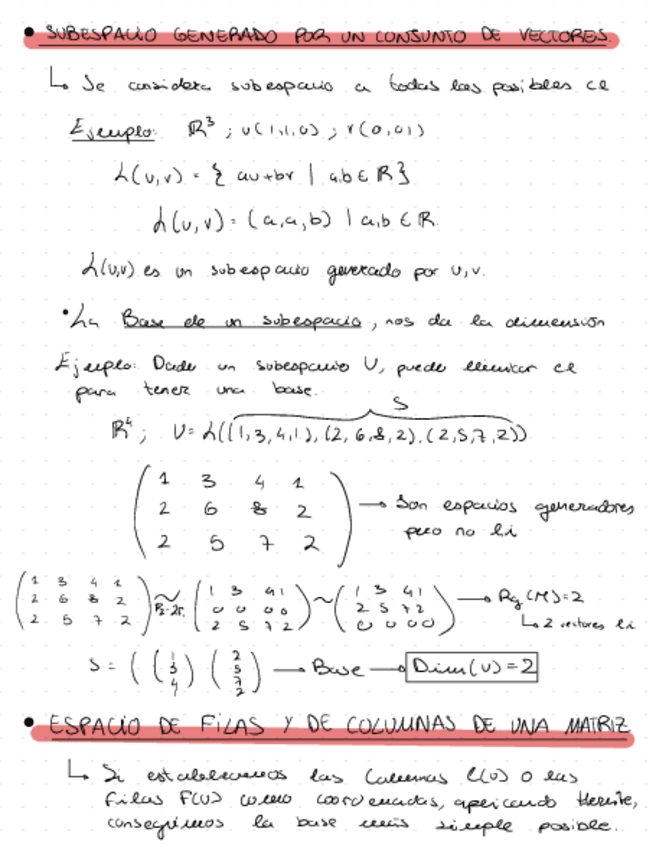 • SUBESPACIO GENERADO POR UN CONJUNTO DE VECTORES.
↳ Se considera subespacio a todas las posibles cl
Ejemplo: ℝ³ ; u(1,1,0) ; v(0,0,1)
L(u,v) = { au+bv | a,b ∈ ℝ }
L(u,v) = (a,a,b) | a,b ∈ ℝ
L(u,v) es un subespacio generado por u,v.
• La Base de un subespacio, nos da la dimensión
Ejemplo: Dado un subespacio U, puedo eliminar cl
para tener una base.
S
ℝ⁴; U = L((1,3,4,1), (2,6,8,2), (2,5,7,2))
1 3 4 1
2 6 8 2 → Son espacios generadores
2 5 7 2 pero no li
(1 3 4 1 ~ (1 3 4 1 ~ (1 3 4 1 → Rg(M)=2
2 6 8 2 0 0 0 0 2 5 7 2
2 5 7 2) 2 5 7 2) 0 0 0 0) ↳ 2 vectores li
S = ( (1 3 4) (2 5 7 2) → Base → Dim(U)=2
• ESPACIO DE FILAS Y DE COLUMNAS DE UNA MATRIZ
↳ Si establecemos las Columnas C(U) o las
Filas F(U) como coordenadas, aplicando Hermite,
conseguimos la base más simple posible.